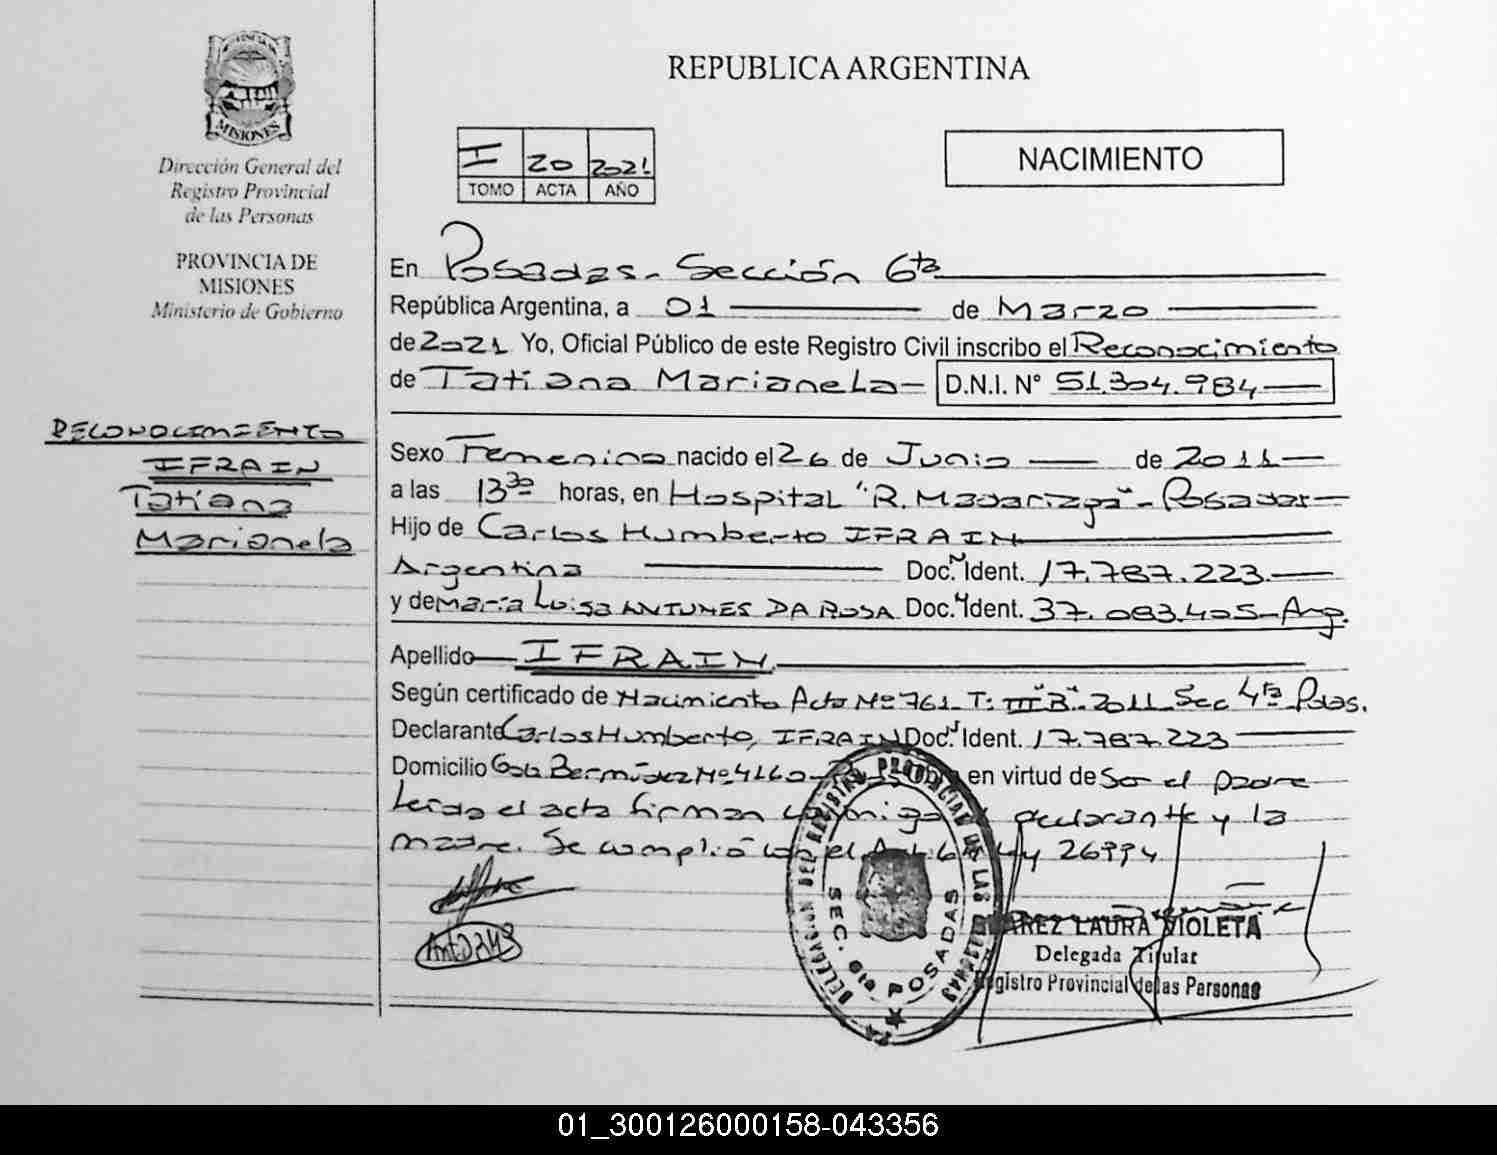 MISIONES
Dirección General del
Registro Provincial
de las Personas
PROVINCIA DE
MISIONES
Ministerio de Gobierno
RECONOCIMIENTO
IFRAIN
Tatiana
Marianela
REPUBLICA ARGENTINA
I 20 2021
TOMO ACTA AÑO
NACIMIENTO
En Posadas - Sección 6ta
República Argentina, a 01 de Marzo
de 2021 Yo, Oficial Público de este Registro Civil inscribo el Reconocimiento
de Tatiana Marianela - D.N.I. N° 51.304.984
Sexo Femenino nacido el 26 de Junio de 2011
a las 13 30 horas, en Hospital "R. Madariaga" - Posadas
Hijo de Carlos Humberto IFRAIN
Argentina Doc. N Ident. 17.787.223
y de María Luisa ANTUNES DA ROSA Doc. Ident. 37.083.405 - Arg.
Apellido IFRAIN
Según certificado de Nacimiento Acta Nº 761 T: III "B" 2011 Sec 4ta Pdas.
Declarante Carlos Humberto, IFRAIN Doc. Ident. 17.787.223
Domicilio Bermúdez Nº 4160 en virtud de Ser el padre
Leída el acta firman declarante y la
madre. Se cumplió con el Ley 26994
DELEGACIÓN DEL REGISTRO PROVINCIAL DE LAS PERSONAS
SEC. 6ta POSADAS
LAURA VIOLETA
Delegada Titular
Registro Provincial de las Personas
01_300126000158-043356